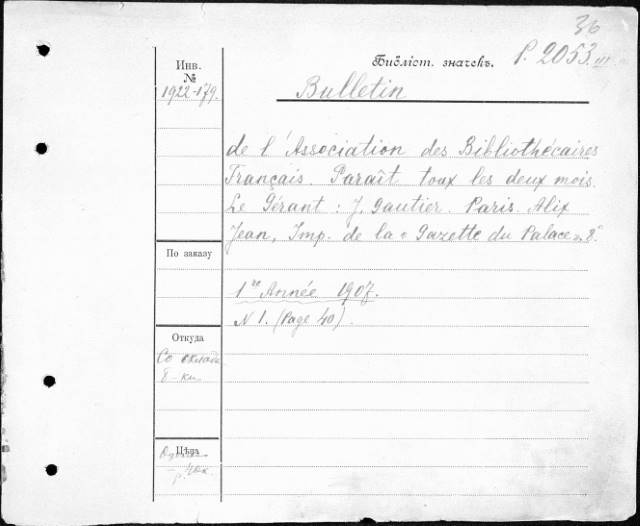 36
Инв.
№
1922-179.
Библіот. значекъ. P. 2053.III
Bulletin
de l'Association des Bibliothécaires
Français. Paraît toux les deux mois.
Le Gérant : J. Gautier. Paris. Alix
Jean, Imp. de la « Gazette du Palace ». 8°.
По заказу
1re Année 1907.
N 1. (Page 40).
Откуда
Со склада
б-ки
Цѣна
р. 40к.